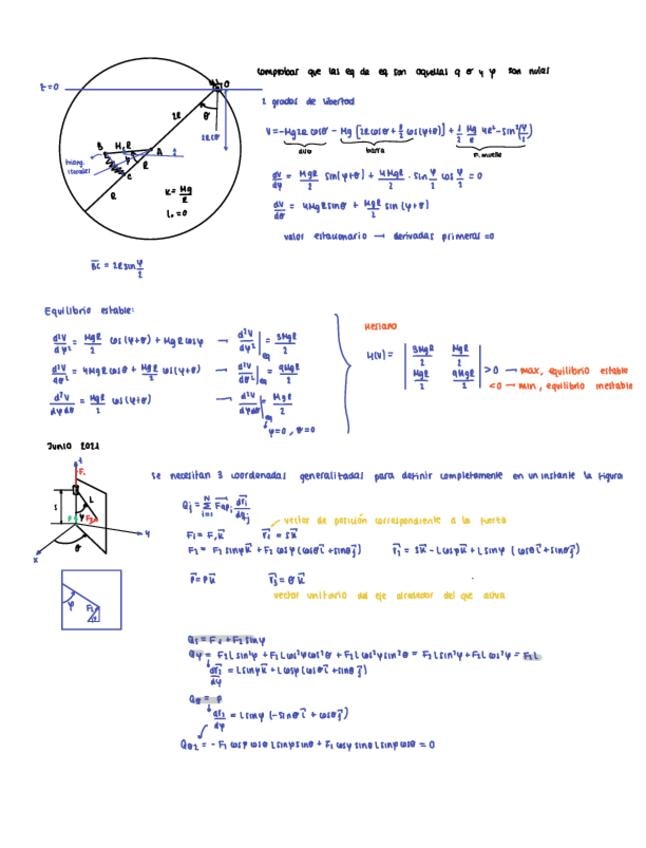 comprobar que las eq de eq son aquellas q θ y φ son nulas
z=0
O
2 grados de libertad
2R
θ
2Rcosθ
V=-Mg2Rcosθ - Mg[2Rcosθ + R/2 cos(φ+θ)] + 1/2 Mg/R 4R²-sin²(φ/2)
aro
barra
P. muelle
B M,R A
φ
R
C
R
K = Mg/R
l₀=0
dV/dφ = MgR/2 sin(φ+θ) + 4MgR/2 · sin φ/2 cos φ/2 = 0
dV/dθ = 4MgRsinθ + MgR/2 sin(φ+θ)
valor estacionario → derivadas primeras =0
BC = 2Rsin φ/2
Equilibrio estable:
d²V/dφ² = MgR/2 cos(φ+θ) + MgRcosφ → d²V/dφ²|eq = 3MgR/2
d²V/dθ² = 4MgRcosθ + MgR/2 cos(φ+θ) → d²V/dθ²|eq = 9MgR/2
d²V/dφdθ = MgR/2 cos(φ+θ) → d²V/dφdθ|eq = MgR/2
φ=0, θ=0
Hessiano
H(V) = |3MgR/2 MgR/2|
|MgR/2 9MgR/2|
>0 → max, equilibrio estable
<0 → min, equilibrio inestable
Junio 2021
Se necesitan 3 coordenadas generalizadas para definir completamente en un instante la figura
z
F₁
s
L
φ
F₂
P
y
x
θ
Qj = Σ
vector de posición correspondiente a la fuerza
F₁ = F₁k r₁ = sk
F₂ = F₂ sinφk + F₂ cosφ(cosθi + sinθj) r₂ = sk - Lcosφk + Lsinφ (cosθi + sinθj)
P = Pk r₃ = θk
vector unitario del eje alrededor del que actúa
φ
F₂
Qs = F₁ + F₂sinφ
Qφ = F₂Lsin²φ + F₂Lcos²φcos²θ + F₂Lcos²φsin²θ = F₂Lsin²φ + F₂Lcos²φ = F₂L
dr₂/dφ = Lsinφk + Lcosφ(cosθi + sinθj)
Qθ = P
dr₂/dφ = Lsinφ (-sinθi + cosθj)
Qθ2 = - F₂ cosφ cosθ Lsinφsinθ + F₂ cosφ sinθ Lsinφcosθ = 0